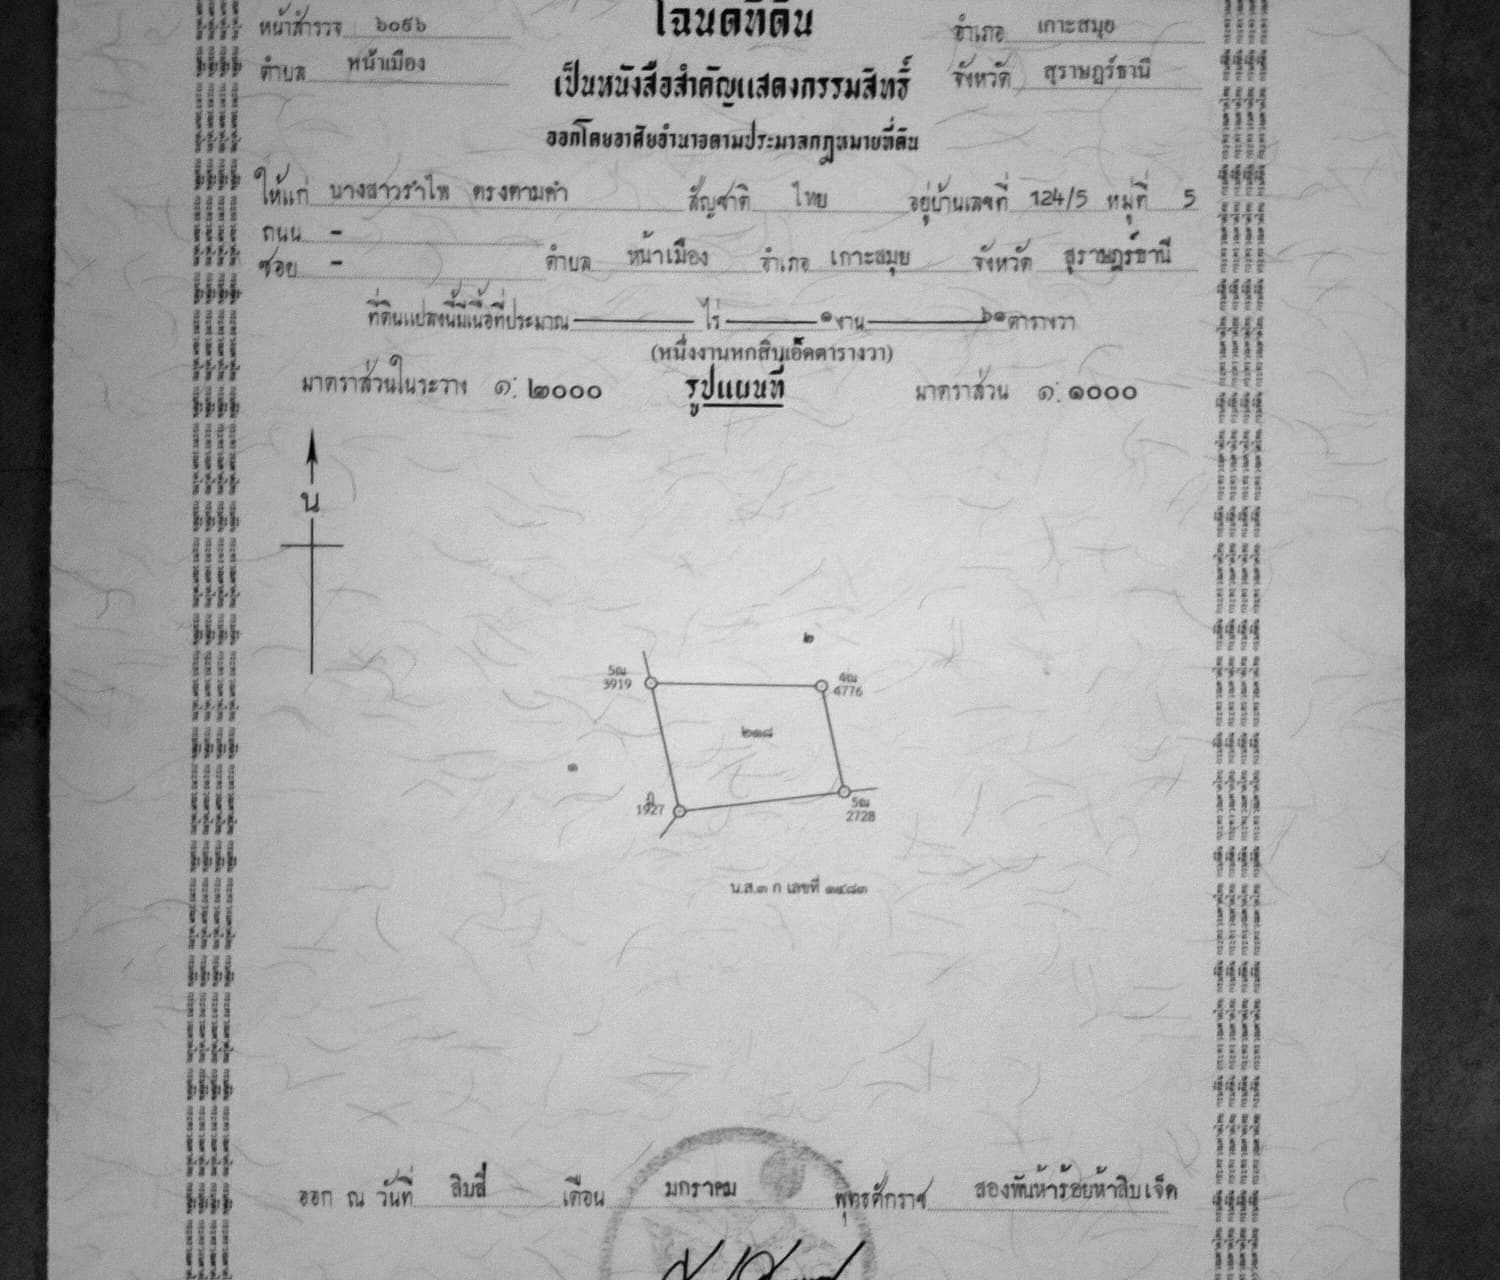 หน้าสำรวจ ๖๐๙๖ โฉนดที่ดิน อำเภอ เกาะสมุย
ตำบล หน้าเมือง เป็นหนังสือสำคัญแสดงกรรมสิทธิ์ จังหวัด สุราษฎร์ธานี
ออกโดยอาศัยอำนาจตามประมวลกฎหมายที่ดิน
ให้แก่ นางสาวรำไพ ตรงตามคำ สัญชาติ ไทย อยู่บ้านเลขที่ 124/5 หมู่ที่ 5
ถนน -
ซอย - ตำบล หน้าเมือง อำเภอ เกาะสมุย จังหวัด สุราษฎร์ธานี
ที่ดินแปลงนี้มีเนื้อที่ประมาณ ไร่ ๑ งาน ๖๑ ตารางวา
(หนึ่งงานหกสิบเอ็ดตารางวา)
มาตราส่วนในระวาง ๑:๒๐๐๐ รูปแผนที่ มาตราส่วน ๑:๑๐๐๐
น
๒
5ณ
3919
4ณ
4776
๒๑๘
๑
1927
5ณ
2728
น.ส.๓ ก เลขที่ ๑๔๘๓
ออก ณ วันที่ สิบสี่ เดือน มกราคม พุทธศักราช สองพันห้าร้อยห้าสิบเจ็ด